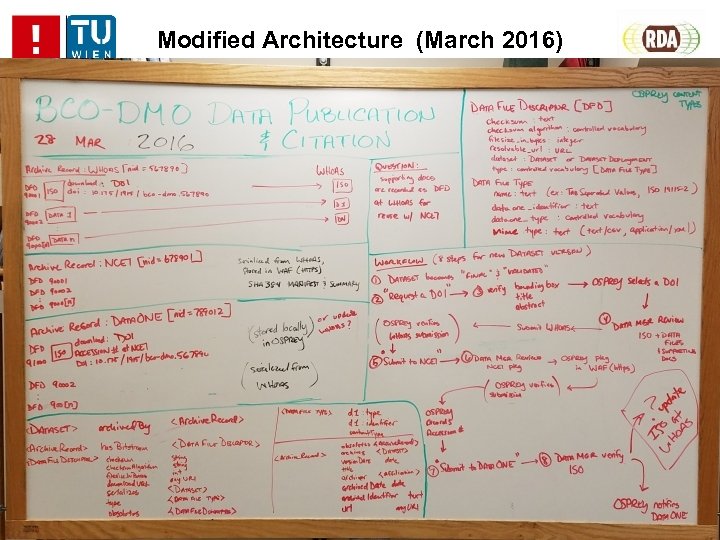 ! TU
WIEN
Modified Architecture (March 2016)
RDA
BCO-DMO DATA PUBLICATION
28 MAR 2016 & CITATION
Archive Record: WHOAS [nid = 567890]
WHOAS
DFD
9001
ISO
download: DOI
doi: 10.1575/1912/bco-dmo.567890
ISO
DFD
9002
DATA 1
D1
DFD
DATA n
DN
Archive Record: NCEI [nid = 678901]
DFD 9001
DFD 9002
DFD 900[n]
serialized from WHOAS,
stored in WAF (HTTPS)
SHA 384 MANIFEST & SUMMARY
Archive Record: DATAONE [nid = 789012]
DFD
9100
ISO
download:
ACCESSION # at NCEI
DFD 9002
DFD 900[n]
(stored locally
in OSPREY)
or update
WHOAS?
(serialized from
WHOAS)
QUESTION:
supporting docs
are recorded as DFD
at WHOAS for
reuse w/ NCEI
OSPREY CONTENT
TYPES
DATA FILE DESCRIPTOR [DFD]
checksum: text
checksum algorithm: controlled vocabulary
filesize_in_bytes: integer
resolvable_url: URL
dataset: DATASET or DATASET DEPLOYMENT
type: controlled vocabulary [DATA FILE TYPE]
DATA FILE TYPE
name: text (ex: Tab Separated Values, ISO 19115-2)
data one_identifier: text
dataone_type: controlled vocabulary
mime type: text (text/csv, application/xml)
WORKFLOW (8 steps for new DATASET VERSION)
① DATASET becomes "FINAL" & "VALIDATED"
② "Request a DOI" → ③ verify bounding box
title
abstract
→ OSPREY Selects a DOI
④ DATA MGR REVIEW
ISO + DATA
FILES
+ SUPPORTING
DOCS
Submit WHOAS
(OSPREY verifies
WHOAS submission)
⑤ "Submit to NCEI" → ⑥ DATA MGR REVIEW
NCEI pkg
→ OSPREY pkg
in WAF (https)
(OSPREY verifies
submission)
OSPREY
records
Accession #
⑦ "Submit to DATAONE" → ⑧ DATA MGR verify
ISO
? update
ISO at
WHOAS
OSPREY notifies
DATAONE
<DATASET> archivedBy <ArchiveRecord>
<ArchiveRecord> hasBitstream <DATA FILE DESCRIPTOR>
<DATA FILE DESCRIPTOR>
checksum string
checksumAlgorithm string
filesizeInBytes int
downloadURL anyURI
serializes <DATASET>
type <DATA FILE TYPE>
obsoletes <DATA FILE DESCRIPTOR>
<DATA FILE TYPE> d1:type
d1:identifier
contentType
<ArchiveRecord> obsoletes <ArchiveRecord>
archives <DATASET>
versionDate date
title
archiver <affiliation>
archivedDate date
archived Identifier text
url anyURI